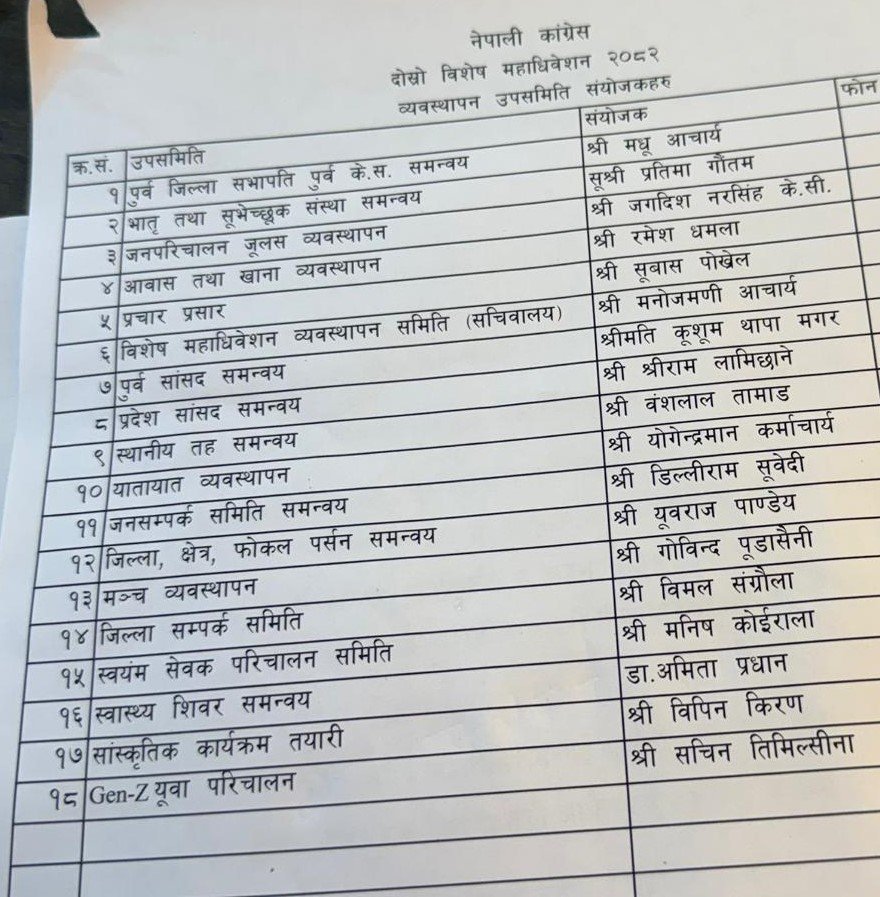 नेपाली कांग्रेस
दोस्रो विशेष महाधिवेशन २०८२
व्यवस्थापन उपसमिति संयोजकहरु
क्र.सं. उपसमिति संयोजक फोन
१ पुर्व जिल्ला सभापति पुर्व के.स. समन्वय श्री मधू आचार्य
२ भातृ तथा सूभेच्छूक संस्था समन्वय सूश्री प्रतिमा गौतम
३ जनपरिचालन जूलस व्यवस्थापन श्री जगदिश नरसिंह के.सी.
४ आवास तथा खाना व्यवस्थापन श्री रमेश धमला
५ प्रचार प्रसार श्री सूबास पोखेल
६ विशेष महाधिवेशन व्यवस्थापन समिति (सचिवालय) श्री मनोजमणी आचार्य
७ पुर्व सांसद समन्वय श्रीमति कूशूम थापा मगर
८ प्रदेश सांसद समन्वय श्री श्रीराम लामिछाने
९ स्थानीय तह समन्वय श्री वंशलाल तामाड
१० यातायात व्यवस्थापन श्री योगेन्द्रमान कर्माचार्य
११ जनसम्पर्क समिति समन्वय श्री डिल्लीराम सूवेदी
१२ जिल्ला, क्षेत्र, फोकल पर्सन समन्वय श्री यूवराज पाण्डेय
१३ मञ्च व्यवस्थापन श्री गोविन्द पूडासैनी
१४ जिल्ला सम्पर्क समिति श्री विमल संग्रौला
१५ स्वयंम सेवक परिचालन समिति श्री मनिष कोईराला
१६ स्वास्थ्य शिवर समन्वय डा.अमिता प्रधान
१७ सांस्कृतिक कार्यक्रम तयारी श्री विपिन किरण
१८ Gen-Z यूवा परिचालन श्री सचिन तिमिल्सीना